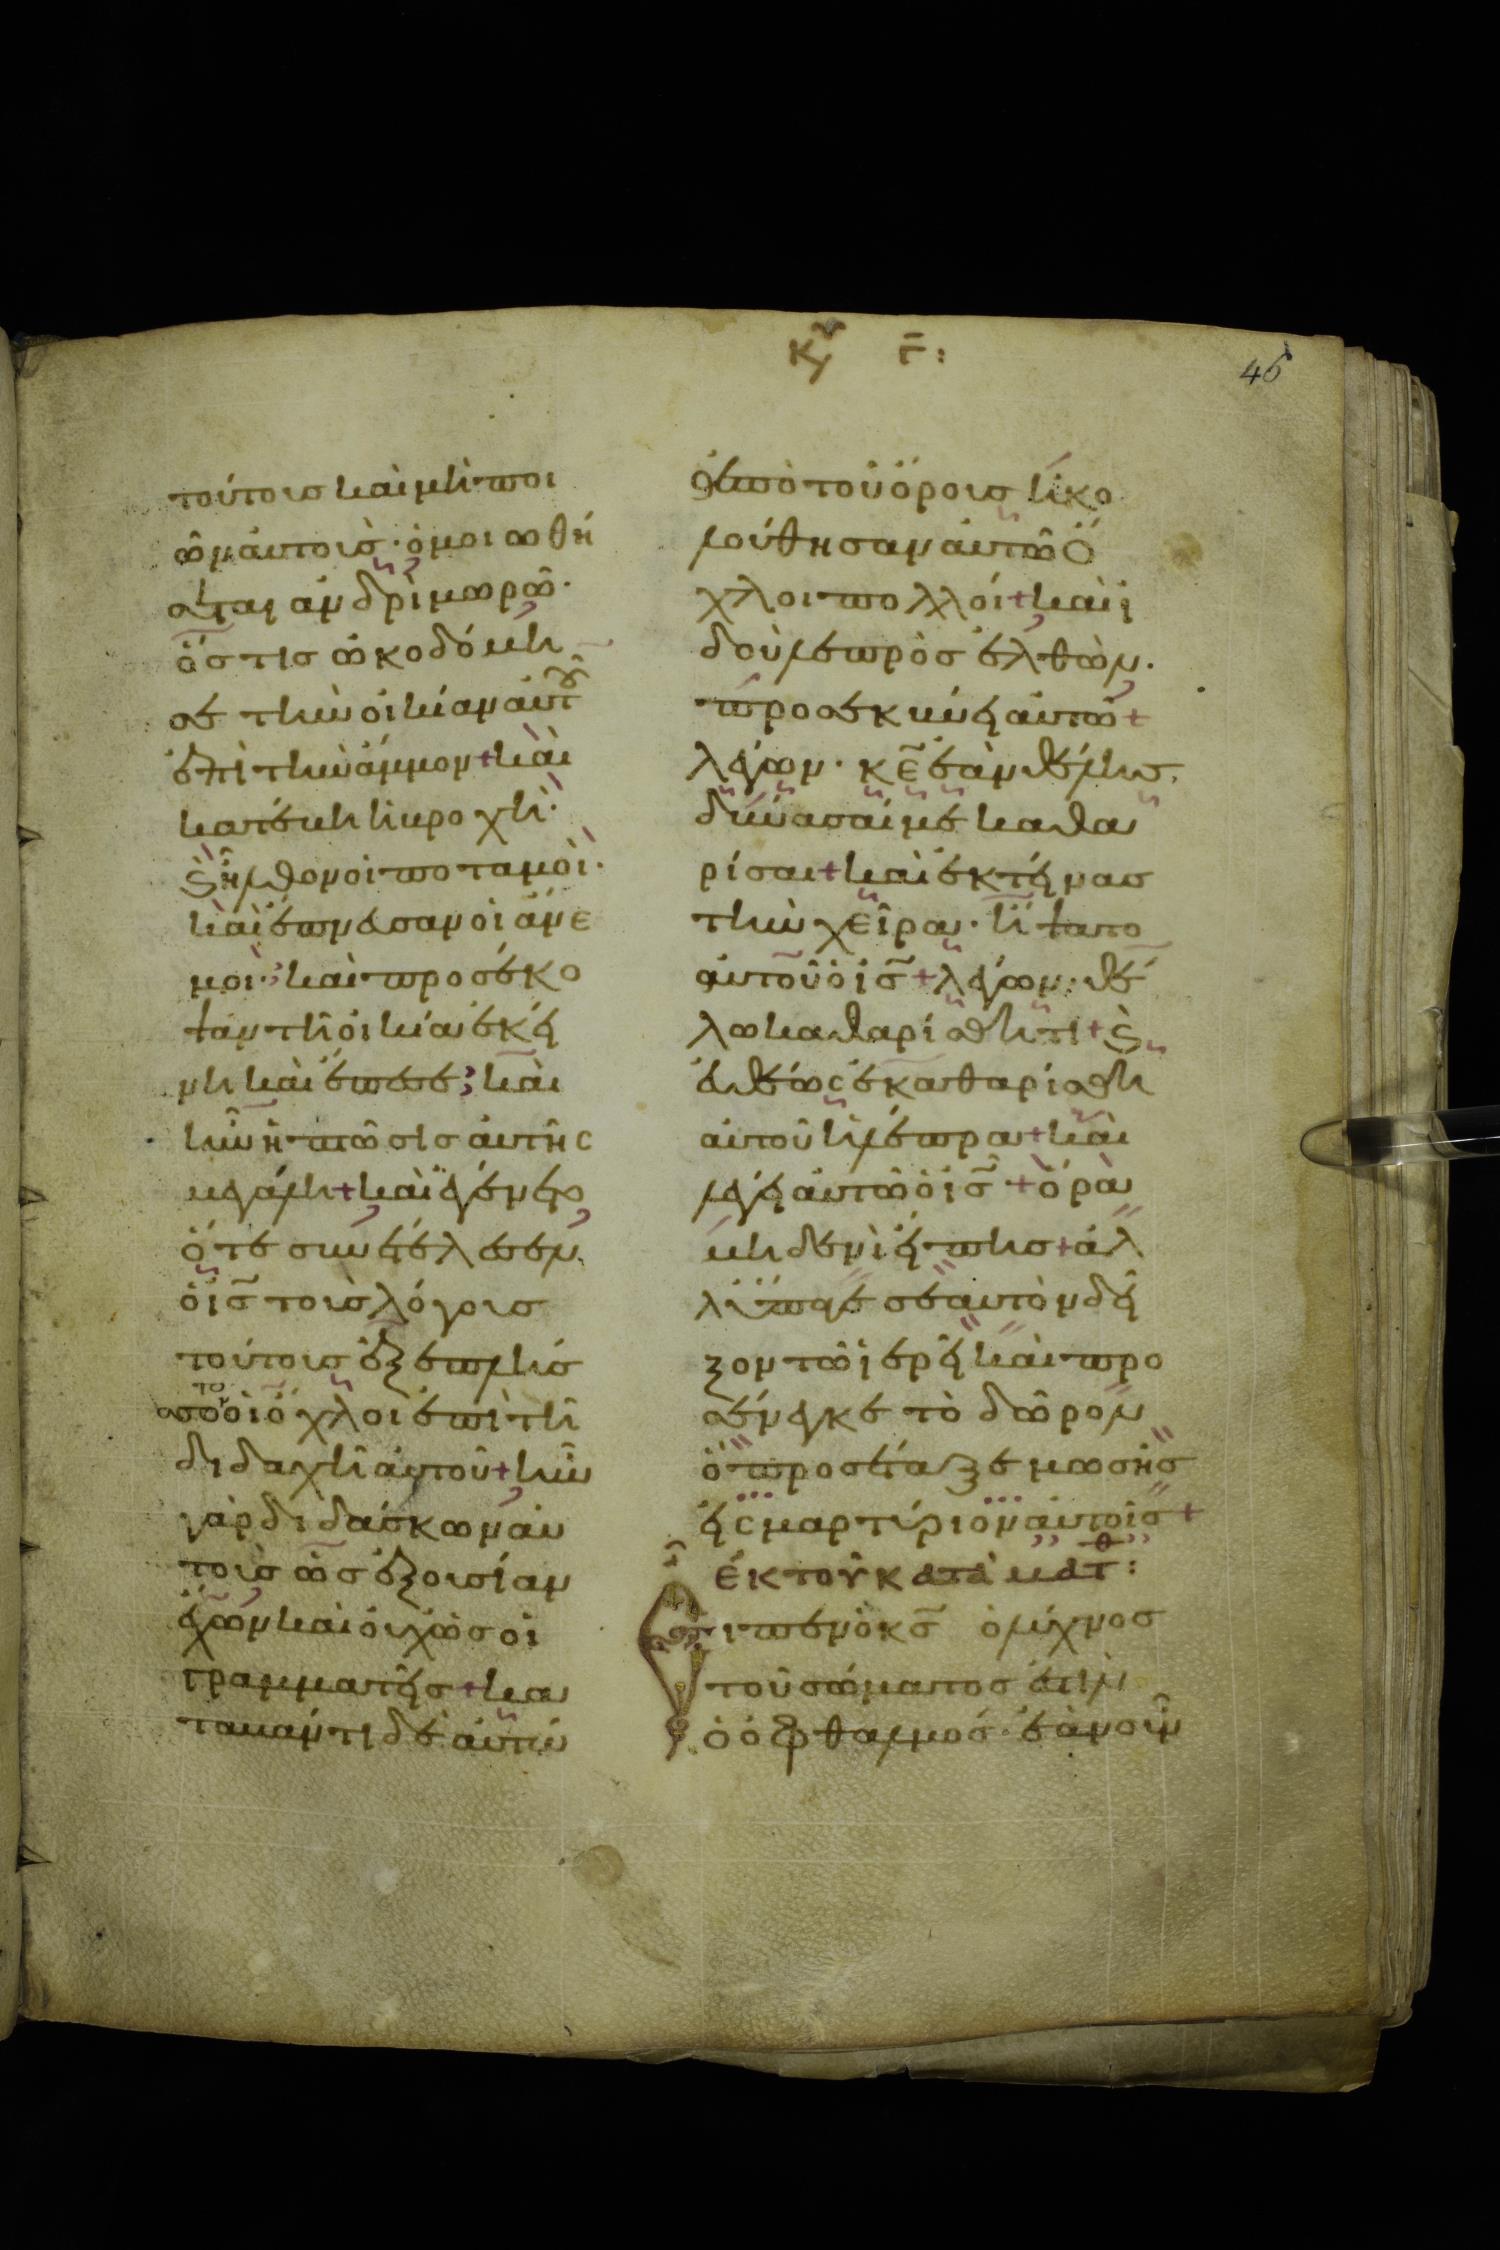 Κυ Γ:
46
τούτοις καὶ μὴ ποι
ῶν αὐτοὺς· ὁμοιωθή
σεται ἀνδρὶ μωρῶ·
ὅστις ὠκοδόμη
σε τὴν οἰκίαν αὐτοῦ
ἐπὶ τὴν ἄμμον + καὶ
κατέβη ἡ βροχὴ·
καὶ ἦλθον οἱ ποταμοὶ·
καὶ ἔπνευσαν οἱ ἄνε
μοι· καὶ προσέκο
ψαν τῆ οἰκία ἐκεί
νη καὶ ἔπεσε; καὶ
ἦν ἡ πτῶσις αὐτῆς
μεγάλη + καὶ ἐγένετο
ὅτε συνετέλεσεν
ὁ ις τοὺς λόγους
τούτους ἐξεπλήσ
σοντο οἱ ὄχλοι ἐπὶ τῆ
διδαχῆ αὐτοῦ + ἦν
γὰρ διδάσκων αὐ
τοὺς ὡς ἐξουσίαν
ἔχων καὶ οὐχ ὡς οἱ
γραμματεῖς + κα
ταβάντι δὲ αὐτῶ
ἀπὸ τοῦ ὄρους ἠκο
λούθησαν αὐτῶ ὄ
χλοι πολλοί + καὶ ἰ
δοὺ λεπρὸς ἐλθὼν·
προσεκύνει αὐτῶ +
λέγων· κε ἐὰν θέλης
δύνασαί με καθα
ρίσαι + καὶ ἐκτείνας
τὴν χεῖρα· ἥψατο
αὐτοῦ ὁ ις + λέγων· θέ
λω καθαρίσθητι + καὶ
εὐθέως ἐκαθαρίσθη
αὐτοῦ ἡ λέπρα + καὶ
λέγει αὐτῶ ὁ ις + ὅρα
μηδενὶ εἴπης + ἀλ
λ' ὕπαγε σεαυτὸν δεῖ
ξον τῶ ἱερεῖ καὶ προ
σένεγκε τὸ δῶρον
ὃ προσέταξε μωσῆς
εἰς μαρτύριον αὐτοῖς +
ἐκ τοῦ κατὰ ματθ:
Εἶπεν ὁ κς ὁ λύχνος
τοῦ σώματος ἐστὶν
ὁ ὀφθαλμός· ἐὰν οὖν